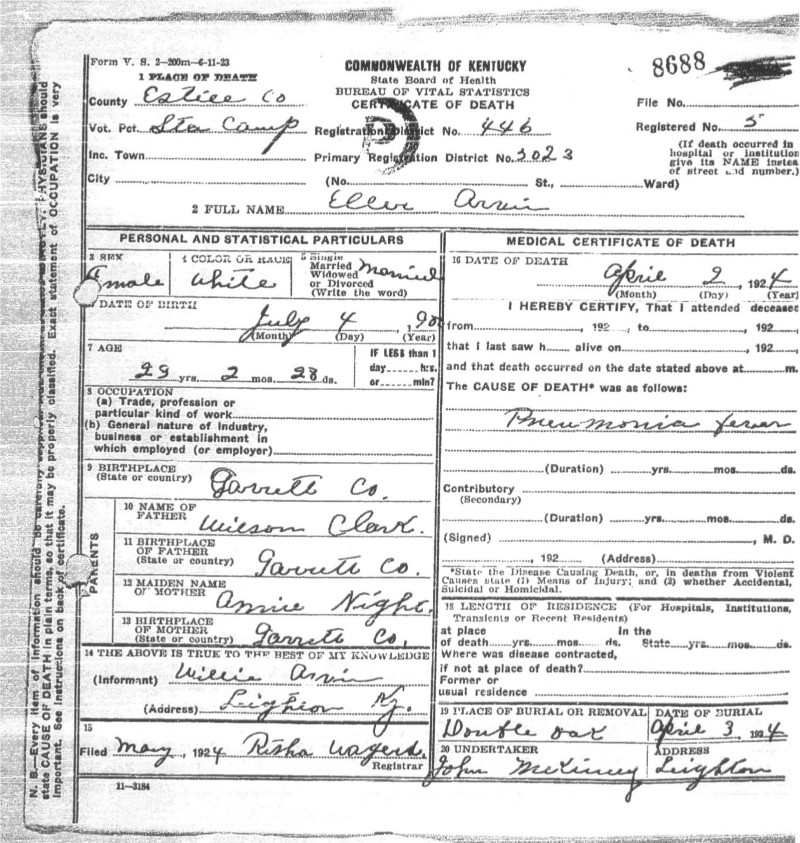 Form V. S. 2—200m—6-11-23
1 PLACE OF DEATH
COMMONWEALTH OF KENTUCKY
State Board of Health
BUREAU OF VITAL STATISTICS
CERTIFICATE OF DEATH
8688
County Estill Co
File No.
Vot. Pct. Sta Camp
Registration District No. 446
Registered No. 5
Inc. Town
Primary Registration District No. 3023
(If death occurred in hospital or institution give its NAME instead of street and number.)
City
(No. St., Ward)
2 FULL NAME Ellen Arvin
PERSONAL AND STATISTICAL PARTICULARS
3 SEX
Female
4 COLOR OR RACE
White
5 Single
Married
Widowed
or Divorced
(Write the word)
Married
DATE OF BIRTH
July 4, 190
(Month) (Day) (Year)
7 AGE
29 yrs. 2 mos. 28 ds.
IF LESS than 1
day hrs.
or min?
8 OCCUPATION
(a) Trade, profession or
particular kind of work
(b) General nature of industry,
business or establishment in
which employed (or employer)
9 BIRTHPLACE
(State or country) Garrett Co.
PARENTS
10 NAME OF
FATHER Wilson Clark.
11 BIRTHPLACE
OF FATHER
(State or country) Garrett Co.
12 MAIDEN NAME
OF MOTHER Annie Night.
13 BIRTHPLACE
OF MOTHER
(State or country) Garrett Co.
14 THE ABOVE IS TRUE TO THE BEST OF MY KNOWLEDGE
(Informant) Willie Arvin
(Address) Leighton Ky.
15
Filed May, 1924 Risha Wagers.
Registrar
11—3184
MEDICAL CERTIFICATE OF DEATH
16 DATE OF DEATH
April 2, 1924
(Month) (Day) (Year)
I HEREBY CERTIFY, That I attended deceased
from , 192 , to , 192
that I last saw h alive on , 192
and that death occurred on the date stated above at m.
The CAUSE OF DEATH* was as follows:
Pneumonia fever
(Duration) yrs. mos. ds.
Contributory
(Secondary)
(Duration) yrs. mos. ds.
(Signed) , M. D.
, 192 (Address)
*State the Disease Causing Death, or, in deaths from Violent
Causes state (1) Means of Injury; and (2) whether Accidental,
Suicidal or Homicidal.
18 LENGTH OF RESIDENCE (For Hospitals, Institutions,
Transients or Recent Residents)
at place In the
of death yrs. mos. ds. State yrs. mos. ds.
Where was disease contracted,
if not at place of death?
Former or
usual residence
19 PLACE OF BURIAL OR REMOVAL
Double Oak
DATE OF BURIAL
April 3, 1924
20 UNDERTAKER
John McKinney
ADDRESS
Leighton
N. B.—Every item of information should be carefully
state CAUSE OF DEATH in plain terms, so that it may be properly classified. Exact statement of OCCUPATION is very
important. See instructions on back of certificate.